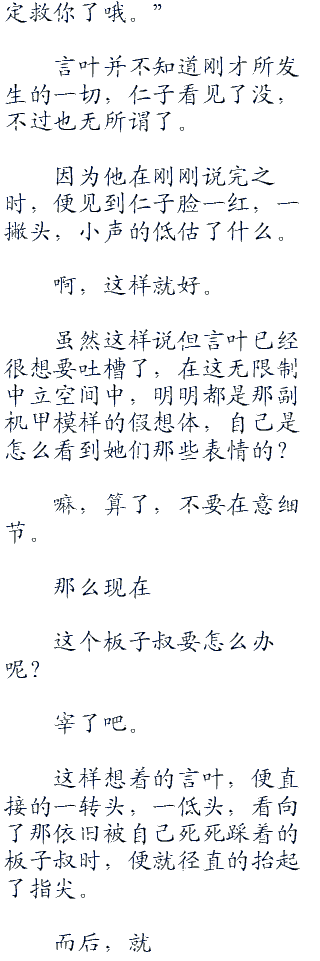 定救你了哦。”
言叶并不知道刚才所发
生的一切，仁子看见了没，
不过也无所谓了。
因为他在刚刚说完之
时，便见到仁子脸一红，一
撇头，小声的低估了什么。
啊，这样就好。
虽然这样说但言叶已经
很想要吐槽了，在这无限制
中立空间中，明明都是那副
机甲模样的假想体，自己是
怎么看到她们那些表情的？
嘛，算了，不要在意细
节。
那么现在
这个板子叔要怎么办
呢？
宰了吧。
这样想着的言叶，便直
接的一转头，一低头，看向
了那依旧被自己死死踩着的
板子叔时，便就径直的抬起
了指尖。
而后，就